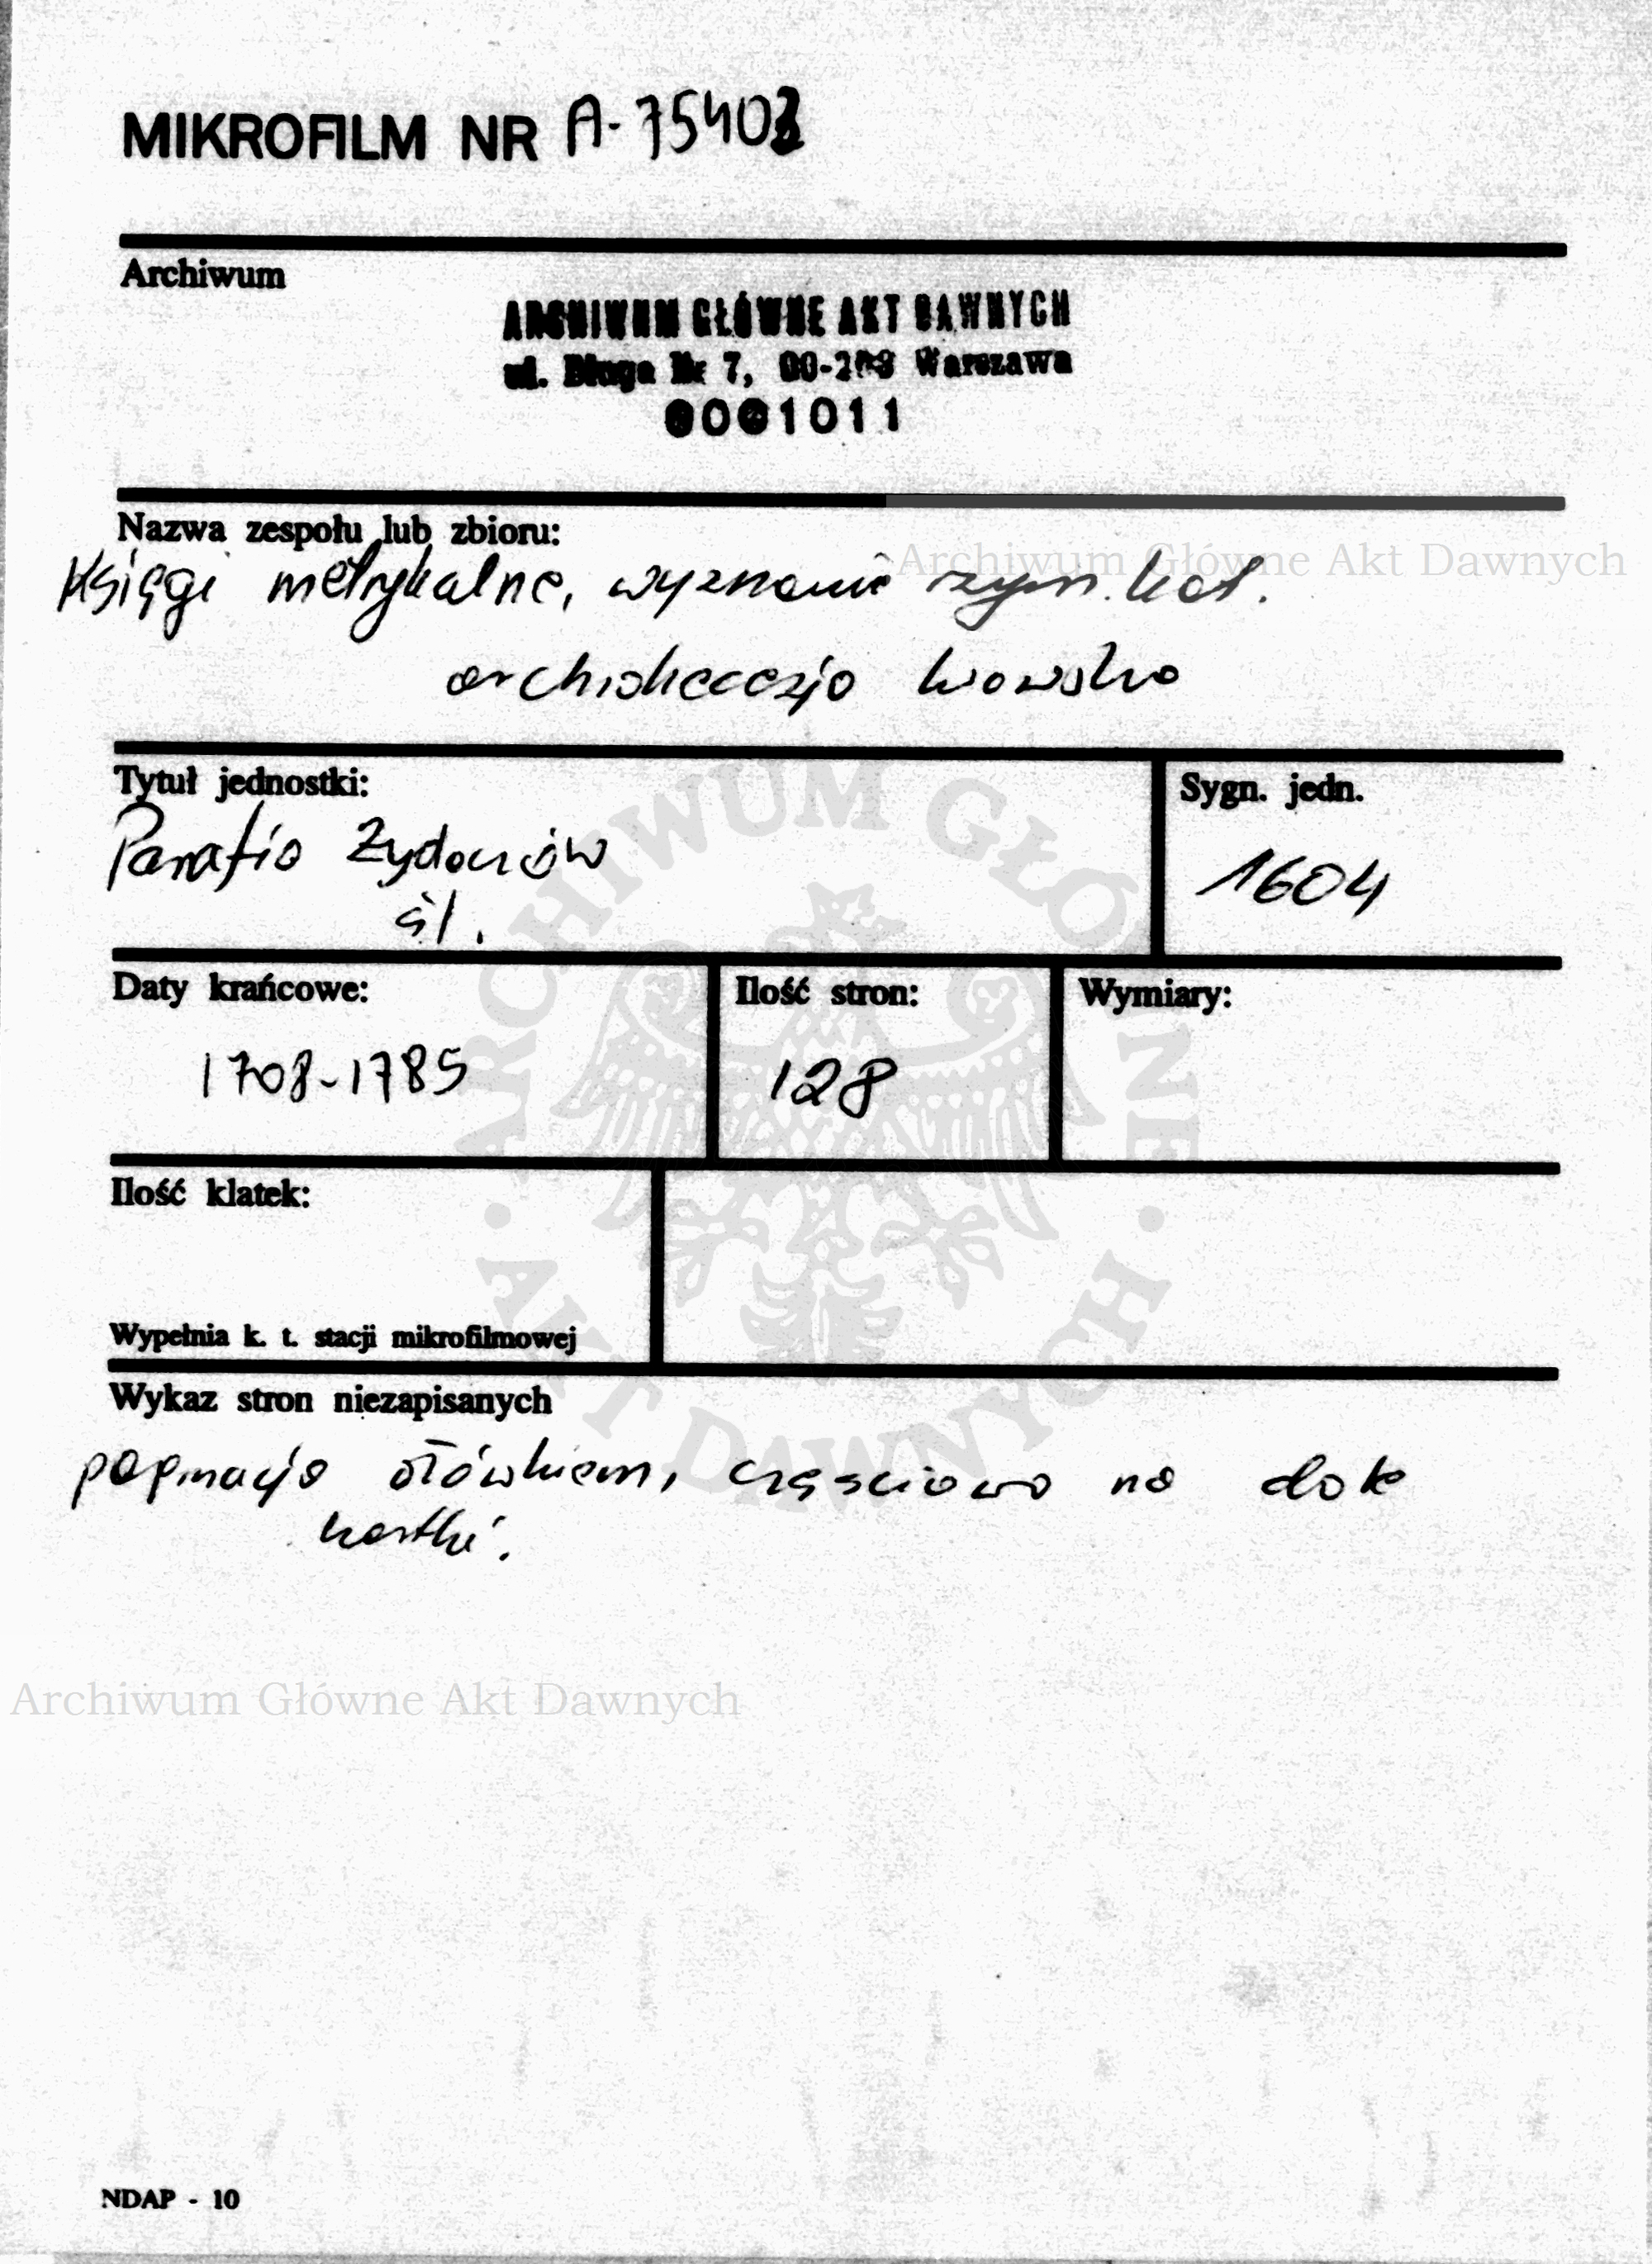 MIKROFILM NR A-7540
Archiwum
ARCHIWUM GŁÓWNE AKT DAWNYCH
ul. Długa Nr 7, 00-263 Warszawa
0001011
Nazwa zespołu lub zbioru:
Archiwum Główne Akt Dawnych
Księgi metrykalne, wyznanie rzym. kat.
archidiecezja lwowska
Tytuł jednostki:
Parafia Żydaczów
śl.
Sygn. jedn.
1604
Daty krańcowe:
1708-1785
Ilość stron:
128
Wymiary:
Ilość klatek:
Wypełnia k. t. stacji mikrofilmowej
ARCHIWUM GŁÓWNE AKT DAWNYCH
Wykaz stron niezapisanych
paginacja ołówkiem, częściowo na dole
kartki.
Archiwum Główne Akt Dawnych
NDAP - 10